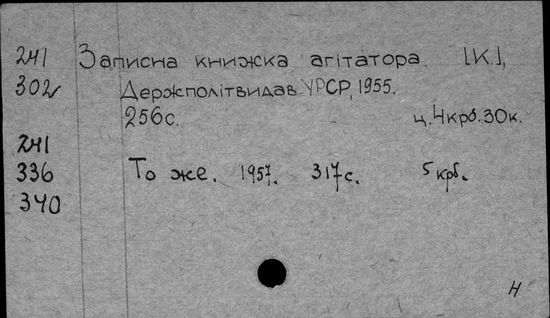 241 Записна книжка агітатора. [К.],
302 Держполітвидав УРСР, 1955.
256с. ц.4крб.30к.
241
336 То же. 1957. 317с. 5крб.
340
Н